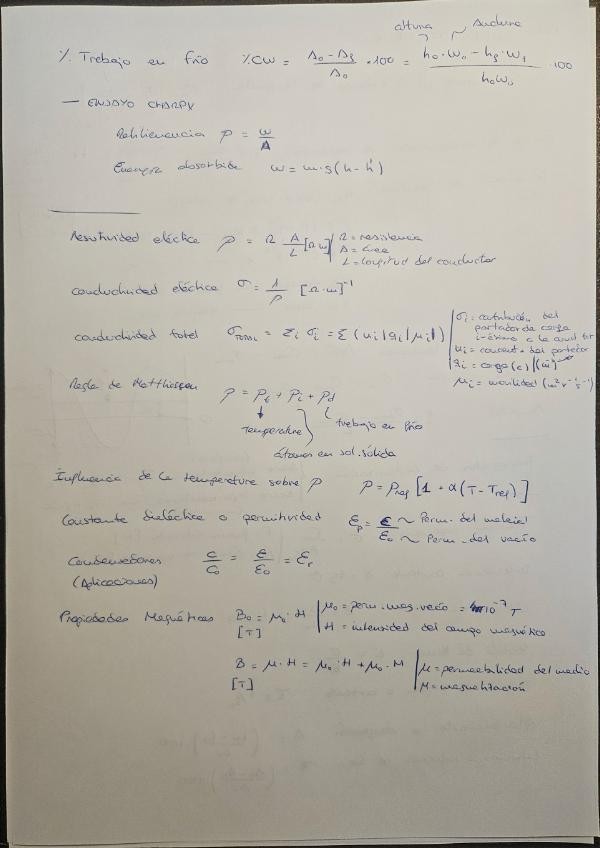 altura Anchura
% Trabajo en frío %CW = (A₀ - A_f)/A₀ · 100 = (h₀·w₀ - h_f·w_f)/(h₀w₀) · 100
— ENSAYO CHARPY
Resiliencia ρ = w/A
Energía absorbida w = m·g(h - h')
Resistividad eléctrica ρ = R A/L [Ω m] | R = resistencia
A = área
L = longitud del conductor
Conductividad eléctrica σ = 1/ρ [Ω·m]⁻¹
Conductividad total σ_TOTAL = Σᵢ σᵢ = Σ(nᵢ|qᵢ|μᵢ|)
σᵢ = contribución del
portador de carga
i-ésimo a la
nᵢ = concent. del portador
qᵢ = carga (c)
μᵢ = movilidad (m² v⁻¹ s⁻¹)
Regla de Matthiessen ρ = ρ_t + ρᵢ + ρ_d
Temperatura trabajo en frío
átomos en sol. sólida
Influencia de la temperatura sobre ρ ρ = ρ_ref [1 + α(T - T_ref)]
Constante dieléctrica o permitividad ε_r = ε/ε₀ ~ Perm. del material
~ Perm. del vacío
Condensadores C/C₀ = ε/ε₀ = ε_r
(Aplicaciones)
Propiedades Magnéticas B₀ = μ₀·H | μ₀ = perm. mag. vacío = 4π10⁻⁷ T
[T] H = intensidad del campo magnético
B = μ·H = μ₀·H + μ₀·M | μ = permeabilidad del medio
[T] M = magnetización